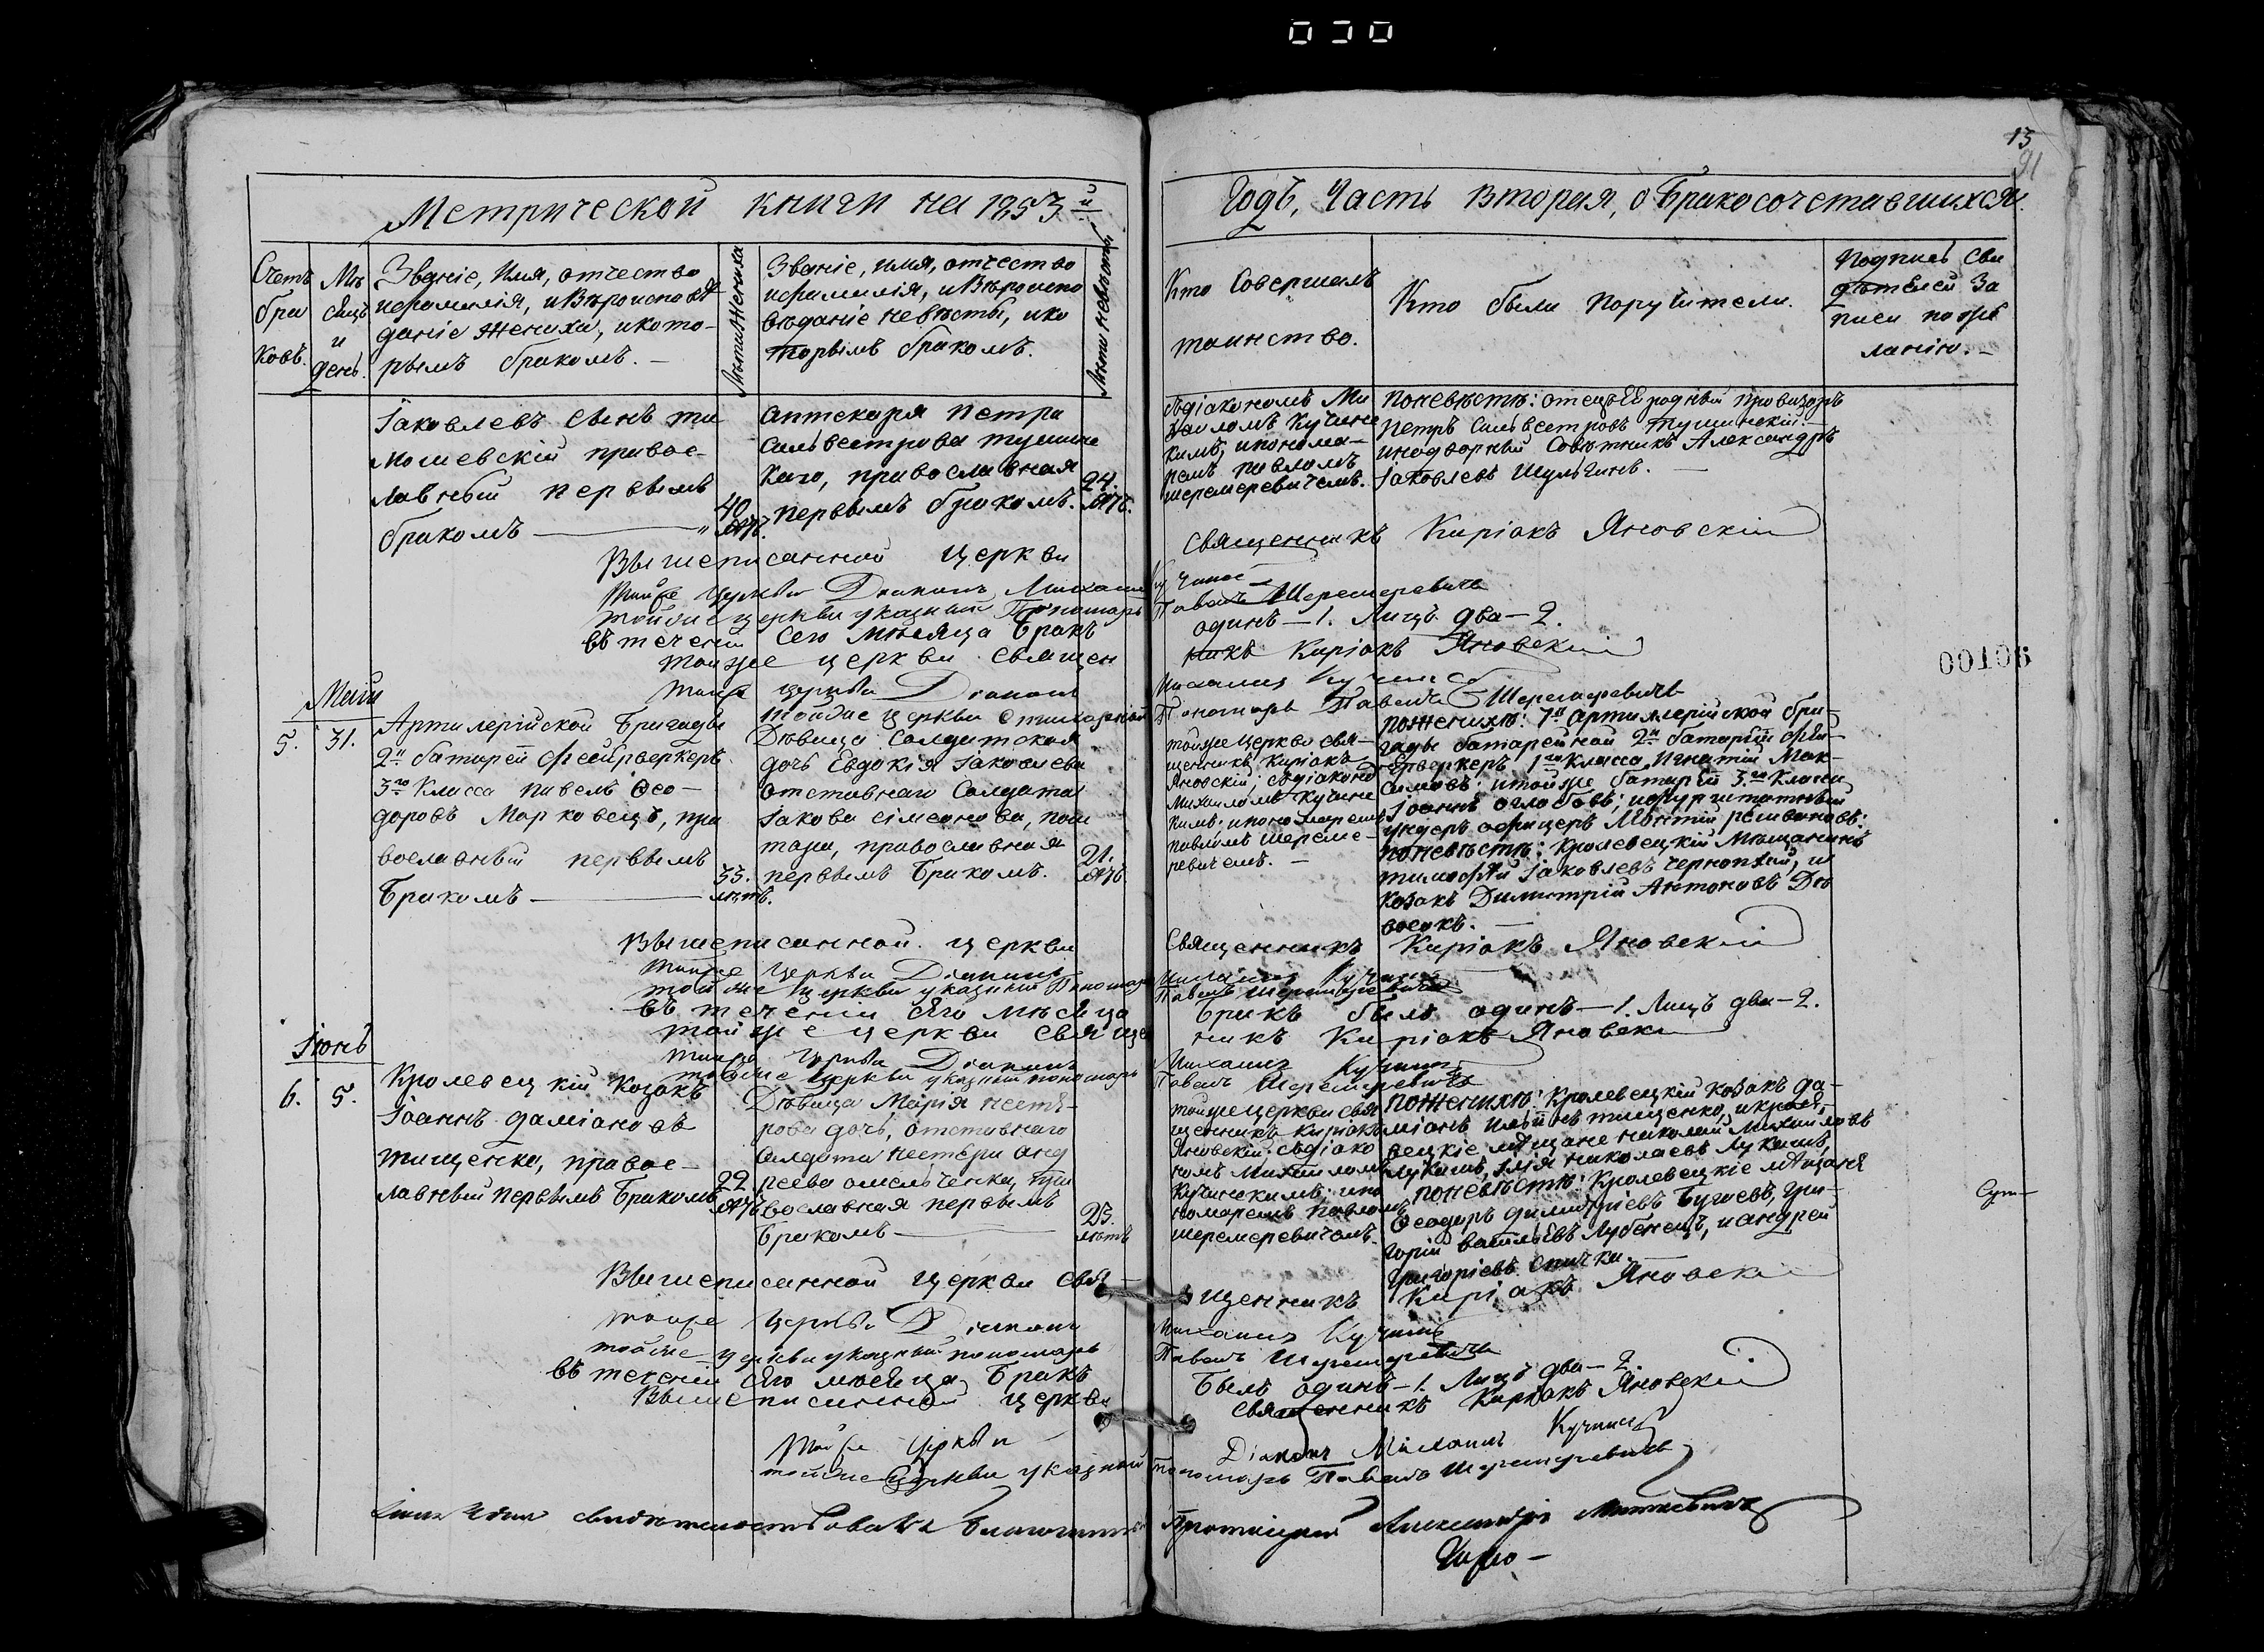 030
13
91
Метрической книги на 1853й
Годъ, Часть вторая, о Бракосочетавшихся.
Счетъ бра ковъ.
Мѣ сяцъ и день.
Званіе, Имя, отчество
ифамилія, иВѣроисповѣ
даніе жениха, икото-
рымъ бракомъ.-
Лѣта жениха
Званіе, имя, отчество
ифамилія, иВѣроиспо
вѣданіе невѣсты, ико
торымъ бракомъ.
Лѣта невѣсты
Кто Совершалъ
таинство.
Кто были Поручители.
Подпись Сви
дѣтелей За
писи по же
ланію.-
Іаковлевъ Сынъ ти
мошевскій правос-
лавный первымъ
бракомъ
40 лѣтъ.
аптекаря Петра
Сильвестрова тушинс
каго, православная
первымъ бракомъ.
24. лѣтъ.
съдіакономъ Ми
хаиломъ Кучинс
кимъ, ипонома-
ремъ павломъ
шеремеревичемъ.
поневѣстѣ: отецъ Ея родный провизоръ
Петръ Сильвестровъ Тушинскій-
инадворный Совѣтникъ Александръ
Іаковлевъ Шульгинъ.-
Вышеписанной Церкви Священникъ Киріакъ Яновскій
Тойже Церкви Діаконъ Михаилъ Кучинс
тойже церкви указный Пономарь Павелъ Шеремеревичъ
въ теченіи Сего Мѣсяца Бракъ одинъ-1. Лицъ два-2.
тойже церкви Священ никъ Киріакъ Яновскій
тойже церкви Діаконъ Михаилъ Кучинс
тойже Церкви Стихарный Пономарь Павелъ Шеремеревичъ
Маія
5. 31.
Артилерійской Бригады
2й батареи фейрверкеръ
3го Класса Павелъ Ѳео-
доровъ Марковецъ, пра
вославный первымъ
Бракомъ
33. лѣтъ.
Дѣвица Солдатская
дочь Евдокія Іаковлева
отставнаго Солдата
Іакова Сімеонова,
православная
первымъ Бракомъ.
21. лѣтъ.
тойжецеркви Свя-
щенникъ Киріакъ
Яновскій, съдіаконо
Михаиломъ Кучинс
кимъ, ипономаремъ
павломъ Шереме-
ревичемъ.-
пожениху: 7й артиллерійской бри-
гады батарейной 2й батареи фей-
ерверкеръ 1го Класса Игнатій Мак-
симовъ; итойже батареи 3го Класса
Іоаннъ
ундеръ офицеръ
поневѣстѣ: Кролевецкій Мѣщанинъ
тимофей Іаковлевъ и
Козакъ Димитрій Антоновъ Дѣ
воскъ.-
Вышеписанной церкви Священникъ Киріакъ Яновскій
тойже Церкви Діаконъ Михаилъ Кучинс
тойже церкви указный Пономарь Павелъ Шеремеревичъ
въ теченіи Сего Мѣсяца Бракъ былъ одинъ-1. Лицъ два-2.
тойже церкви Священ никъ Киріакъ Яновскі
тойже Церкви Діаконъ Михаилъ Кучинс
тойже Церкви указный пономарь Павелъ Шеремеревичъ
Іюнь
6. 5.
Кролевецкій Козакъ
Іоаннъ даміановъ
тищенко, правос-
лавный первымъ Бракомъ
22 лѣтъ
Дѣвица Марія Несте-
рова дочь, отставнаго
Салдата Нестера анд
реева омельченка, пра
вославная первымъ
Бракомъ
25. лѣтъ
тойжецеркви Свя
щенникъ Киріакъ
Яновскій, съдіако
номъ Михаиломъ
Кучинскимъ, ипо
номаремъ Павломъ
шеремеревичемъ.
пожениху: Кролевецкій Козакъ да-
міанъ тищенко, икроле-
вецкіе мѣщане николай Михайловъ
Лукашъ, Ілія николаевъ Лукашъ,
поневѣстѣ: Кролевецкіе мѣщане
Ѳеодоръ димитріевъ Бугаевъ, гри-
горій васильевъ Лубенецъ, иандрей
григоріевъ Спичка.-
Вышеписанной церкви Свя- щенникъ Киріакъ Яновскі
тойже Церкви Діаконъ Михаилъ Кучинс
тойже церкви указный пономарь Павелъ Шеремеревичъ
въ теченіи Сего мѣсяца Бракъ Былъ одинъ-1. Лицъ два-2.
Вышеписанной церкви Священникъ Киріакъ Яновскій
Тойже Церкви Діаконъ Михаилъ Кучинс
тойже Церкви указный пономарь Павелъ Шеремеревичъ
свидѣтельствовалъ Благочинный Протоіерей Александръ
00106